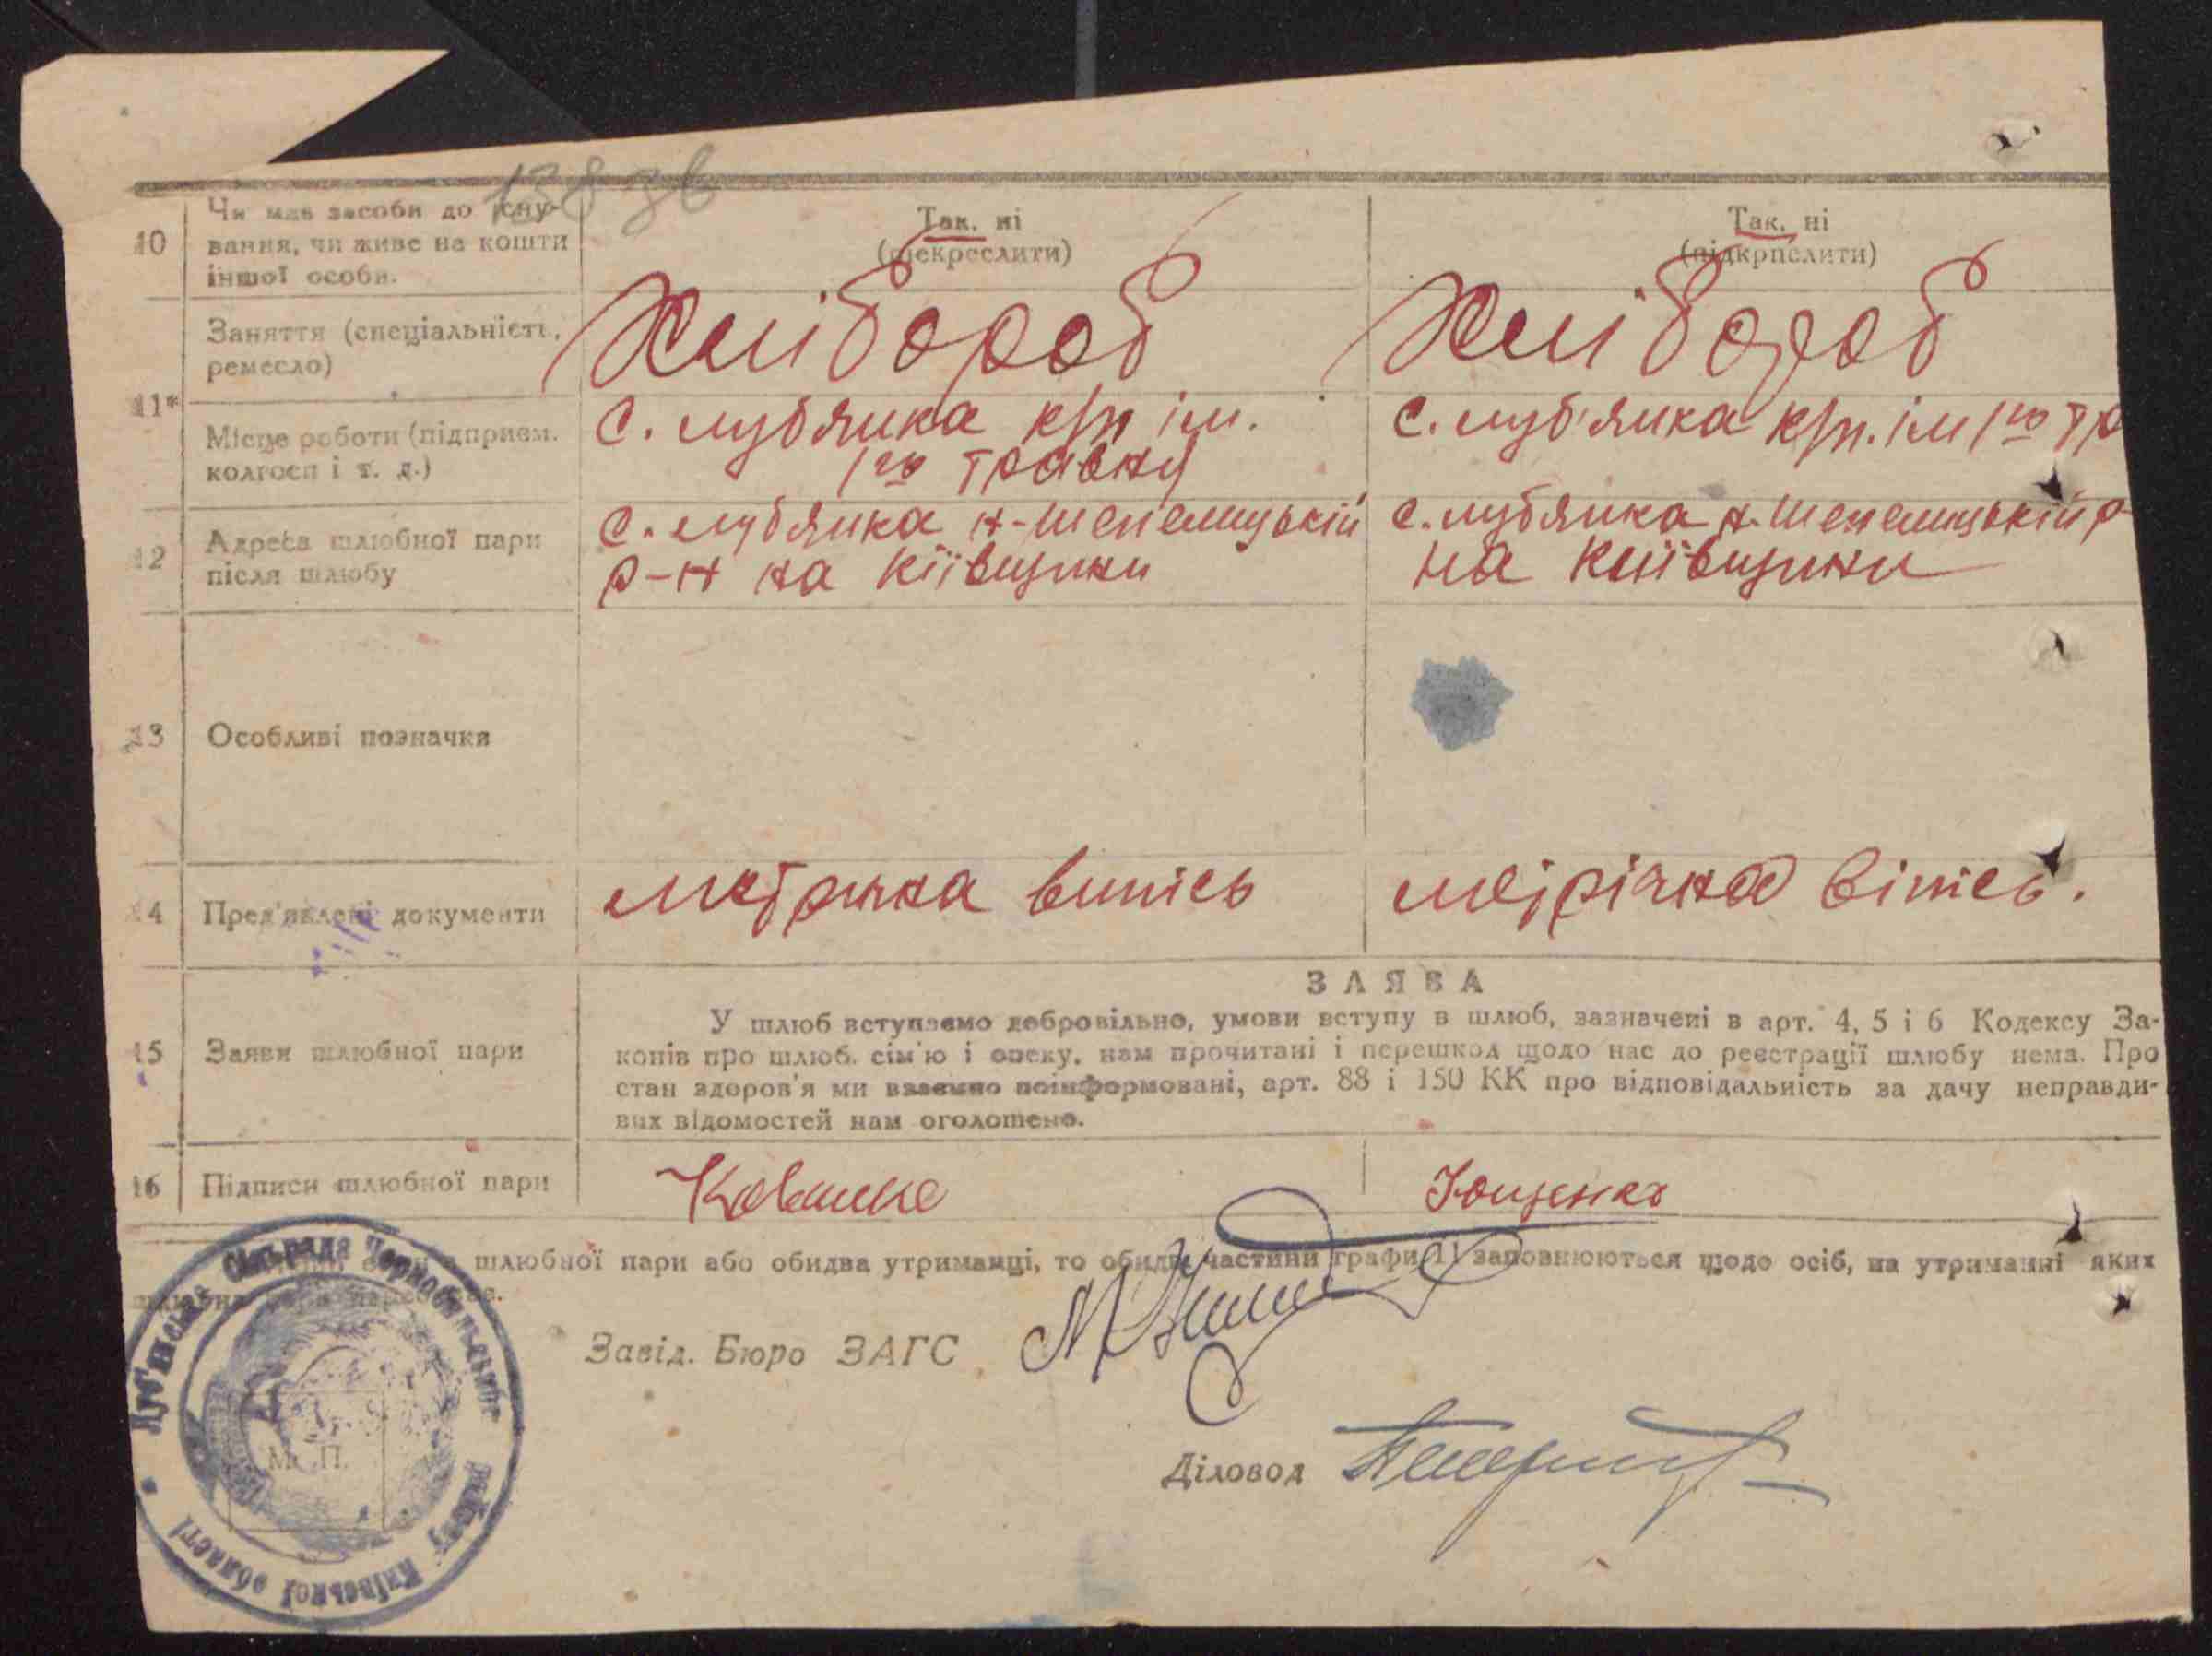 138 зв
10
Чи має засоби до існу-
вання, чи живе на кошти
іншої особи.
Так, ні
(підкреслити)
Так, ні
(підкрпслити)
11*
Заняття (спеціальність,
ремесло)
Хлібороб
Хлібороб
Місце роботи (підприєм.
колгосп і т. д.)
с. Луб'янка к/гп ім.
1го травня
с. Луб'янка к/гп. ім 1го тр
12
Адреса шлюбної пари
після шлюбу
с. Лубянка н-Шепелицькій
р-н на Київщини
с. Лубянка н.Шепелицькій р
на Київщини
13
Особливі позначки
14
Пред'явлені документи
метрична випісь
випісь.
ЗАЯВА
15
Заяви шлюбної пари
У шлюб вступаємо добровільно, умови вступу в шлюб, зазначені в арт. 4, 5 і 6 Кодексу За-
конів про шлюб. сім'ю і опеку, нам прочитані і перешкод щодо нас до реєстрації шлюбу нема. Про
стан здоров'я ми взаємно поінформовані, арт. 88 і 150 КК про відповідальність за дачу неправди-
вих відомостей нам оголошено.
16
Підписи шлюбної пари
Ющенко
шлюбної пари або обидва утриманці, то обидві частини графи 11 заповнюються щодо осіб, на утриманні яких
Завід. Бюро ЗАГС
Діловод
М. П.
Луб'янська Сільрада Чорнобильського району Київської області